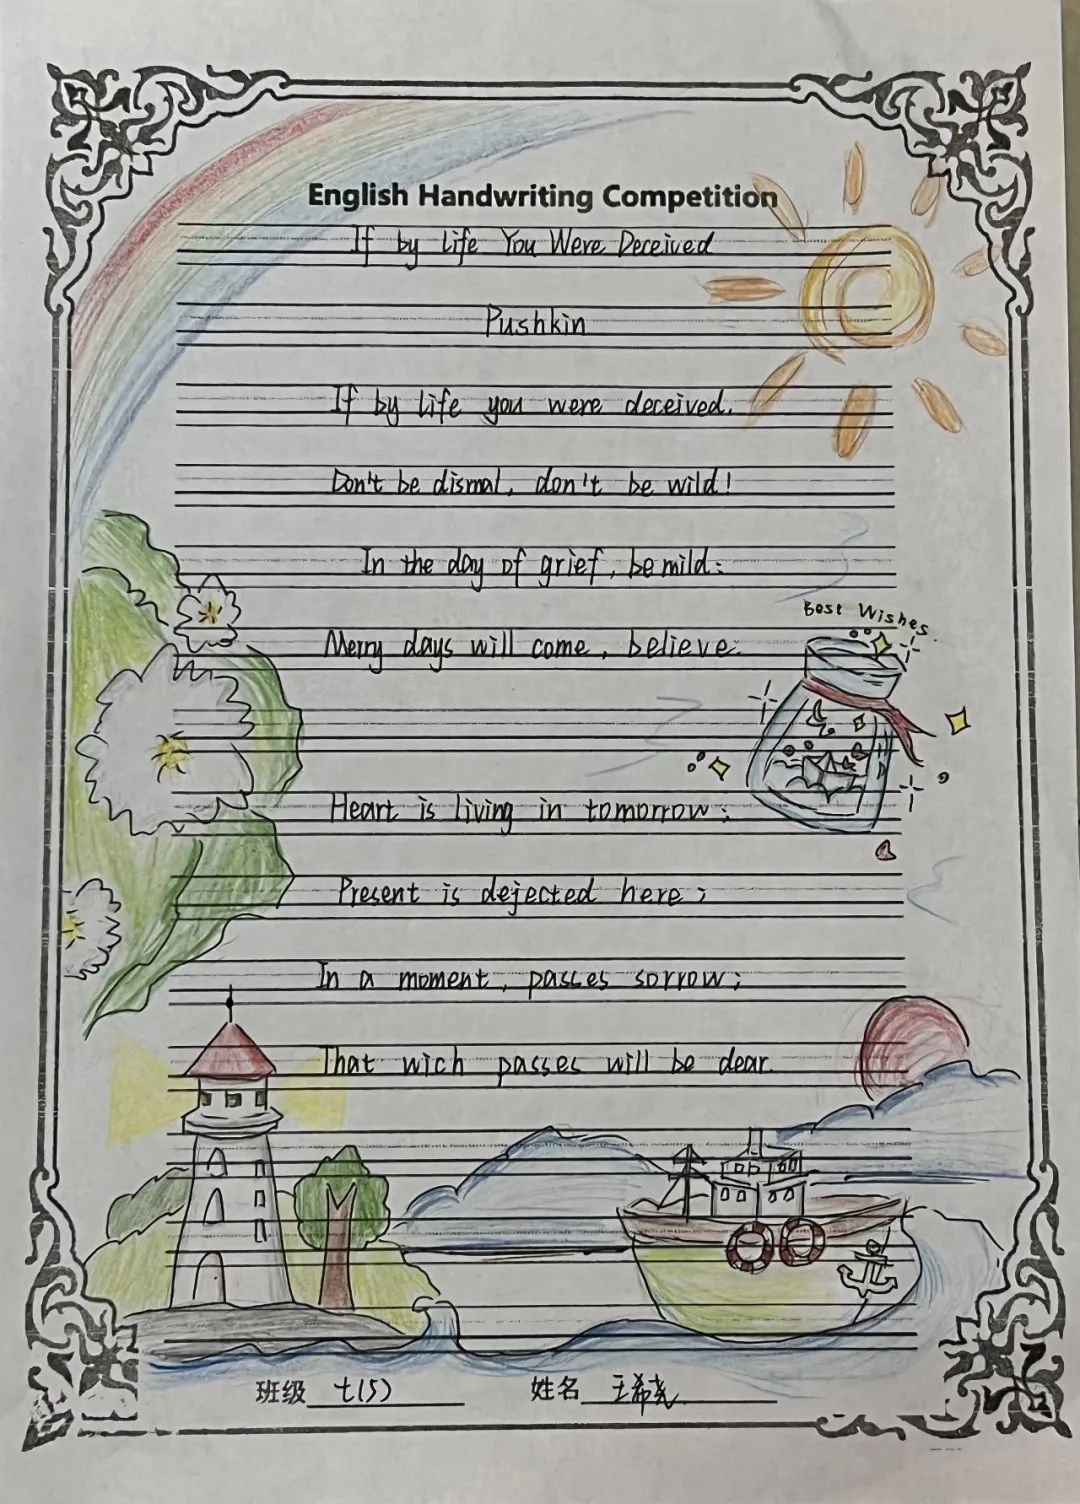 English Handwriting Competition
If by life You Were Deceived
Pushkin
If by life you were deceived.
Don't be dismal, don't be wild!
In the day of grief, be mild:
Best Wishes.
Merry days will come, believe.
Heart is living in tomorrow;
Present is dejected here;
In a moment, passes sorrow;
That wich passes will be dear.
班级 七(5) 姓名 王希尧